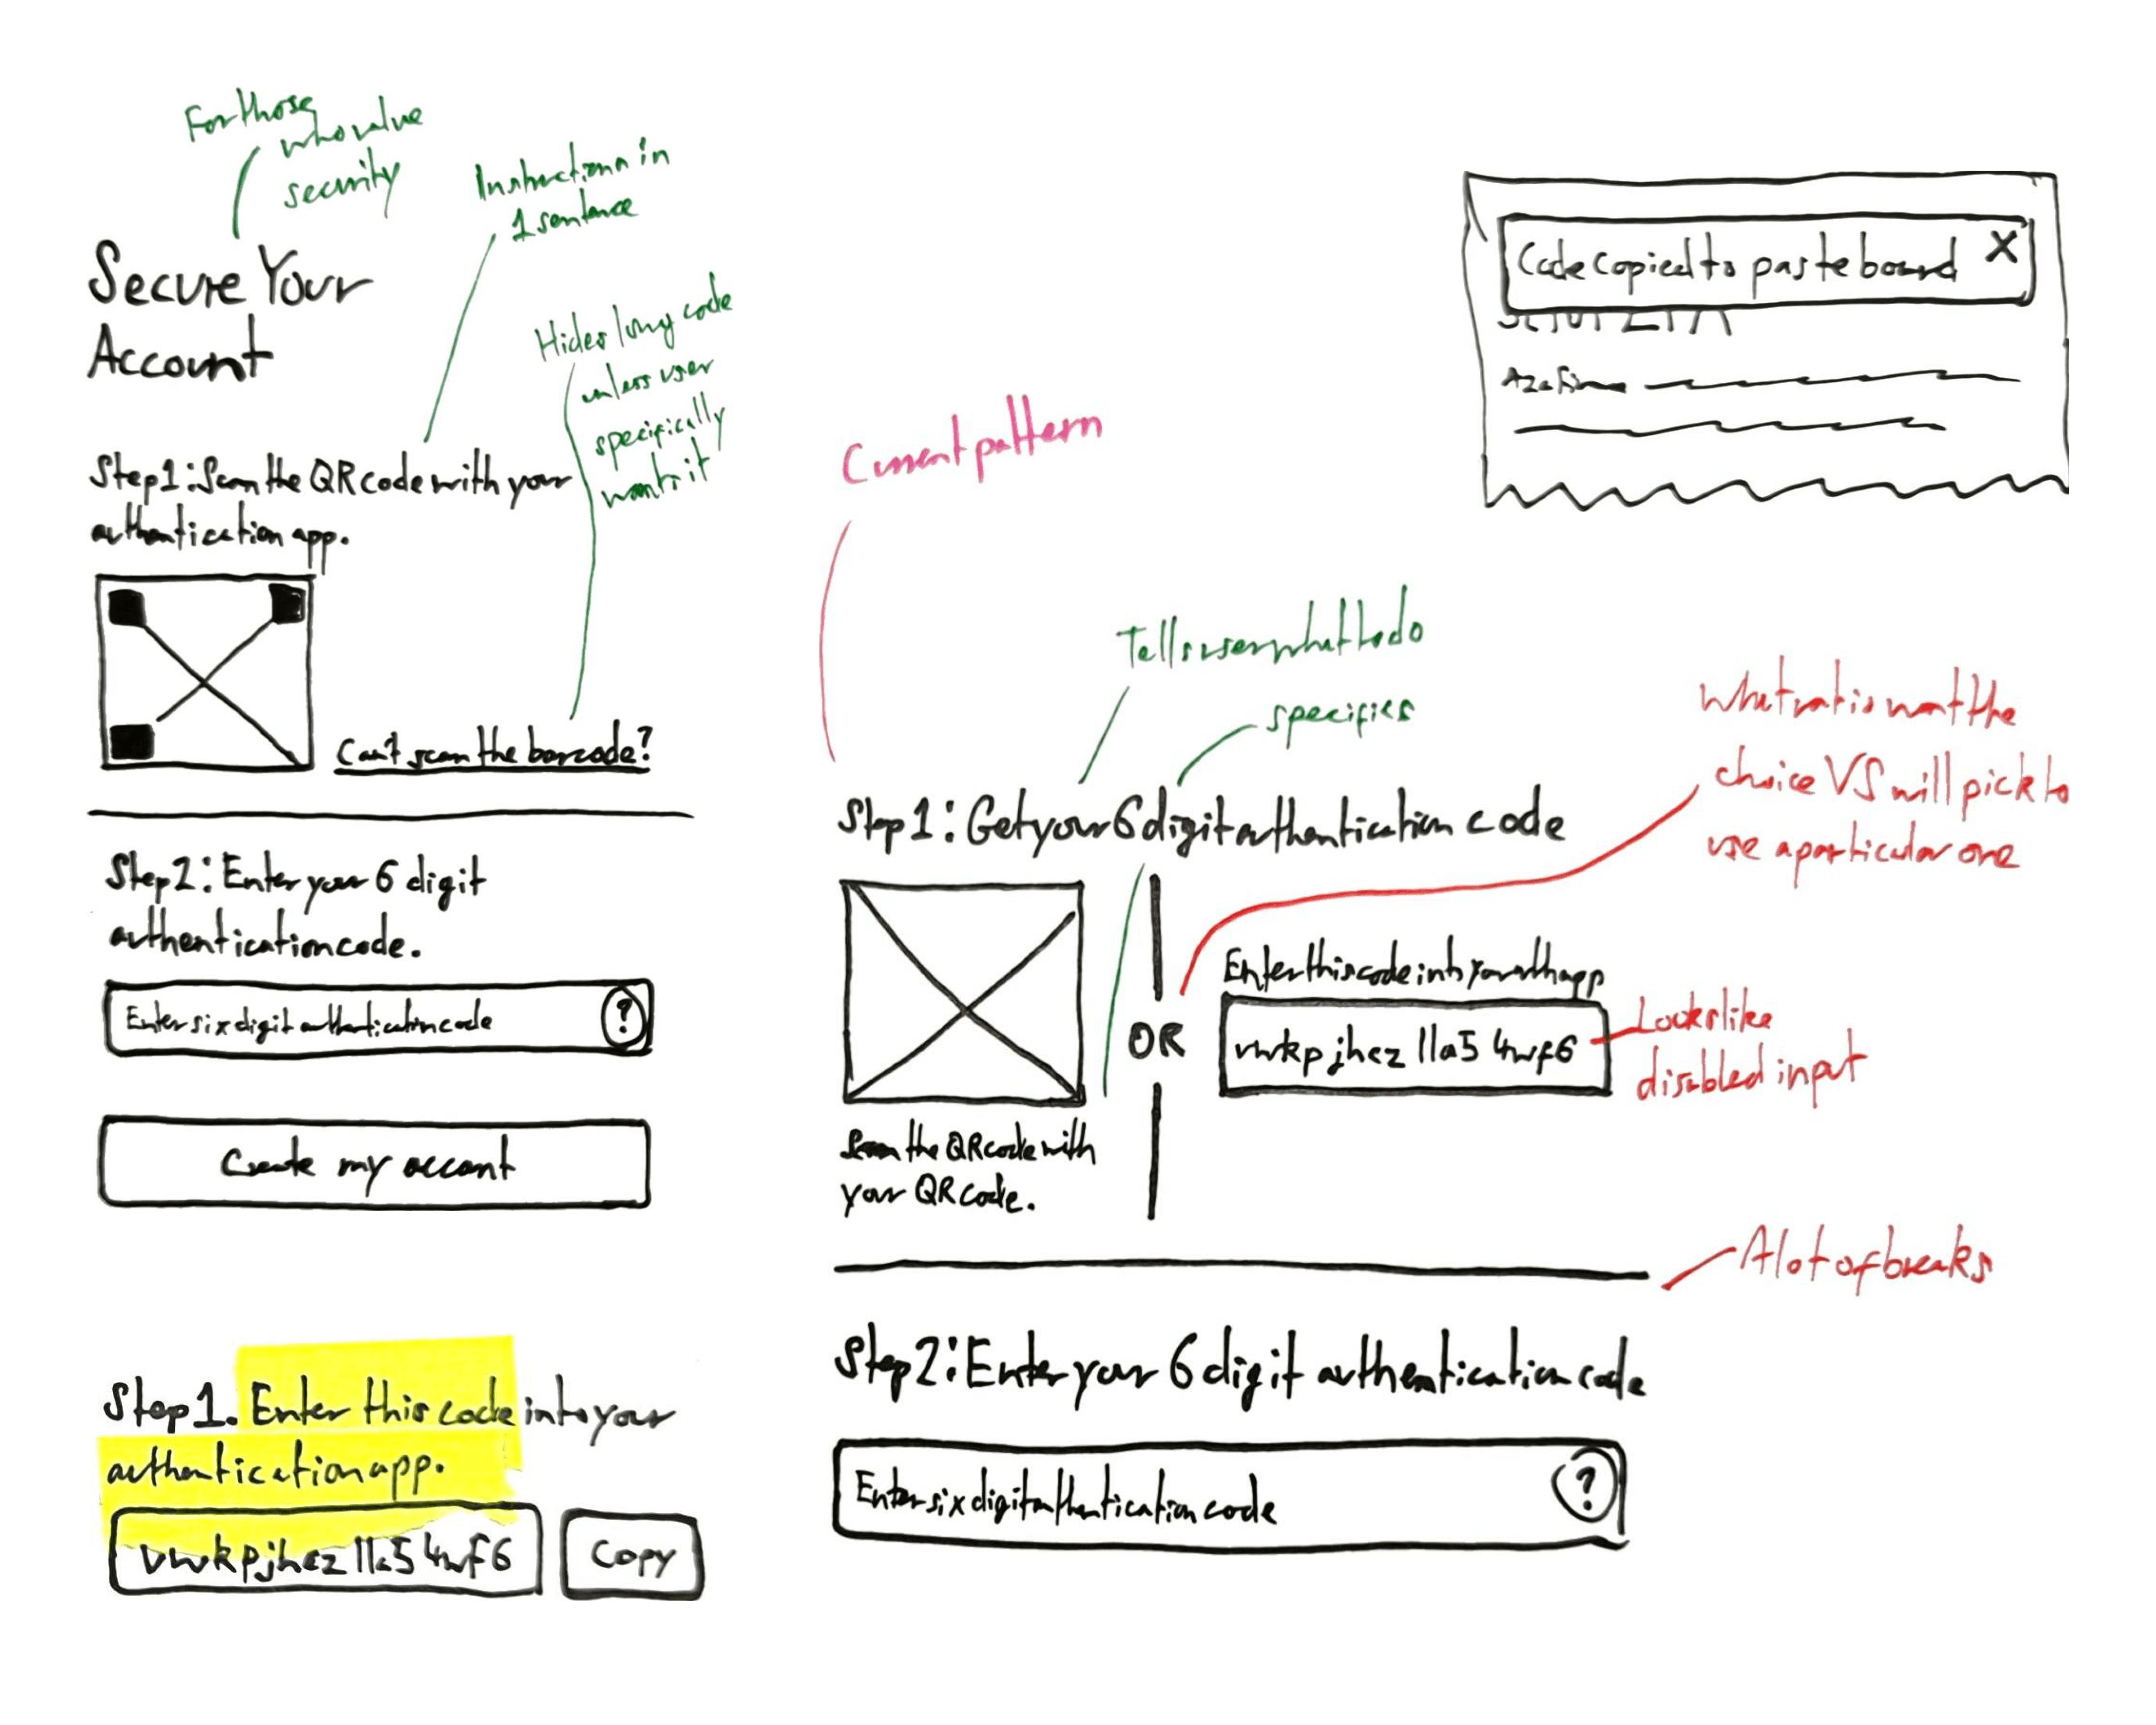 For those
who value
security
Instructions in
1 sentence
Secure Your
Account
Hides long code
unless user
specifically
wants it
Step 1: Scan the QR code with your
authentication app.
Can't scan the barcode?
Step 2: Enter your 6 digit
authentication code.
Enter six digit authentication code
?
Create my account
Step 1. Enter this code into your
authentication app.
vwkpjhez lla5 4wf6
Copy
Current pattern
Tells user what to do
specifics
Step 1: Get your 6 digit authentication code
OR
Enter this code into your auth app
vwkpjhez lla5 4wf6
Scan the QR code with
your QR code.
What ratio want the
choice VS will pick to
use a particular one
Looks like
disabled input
A lot of breaks
Step 2: Enter your 6 digit authentication code
Enter six digit authentication code
?
Code copied to pasteboard X